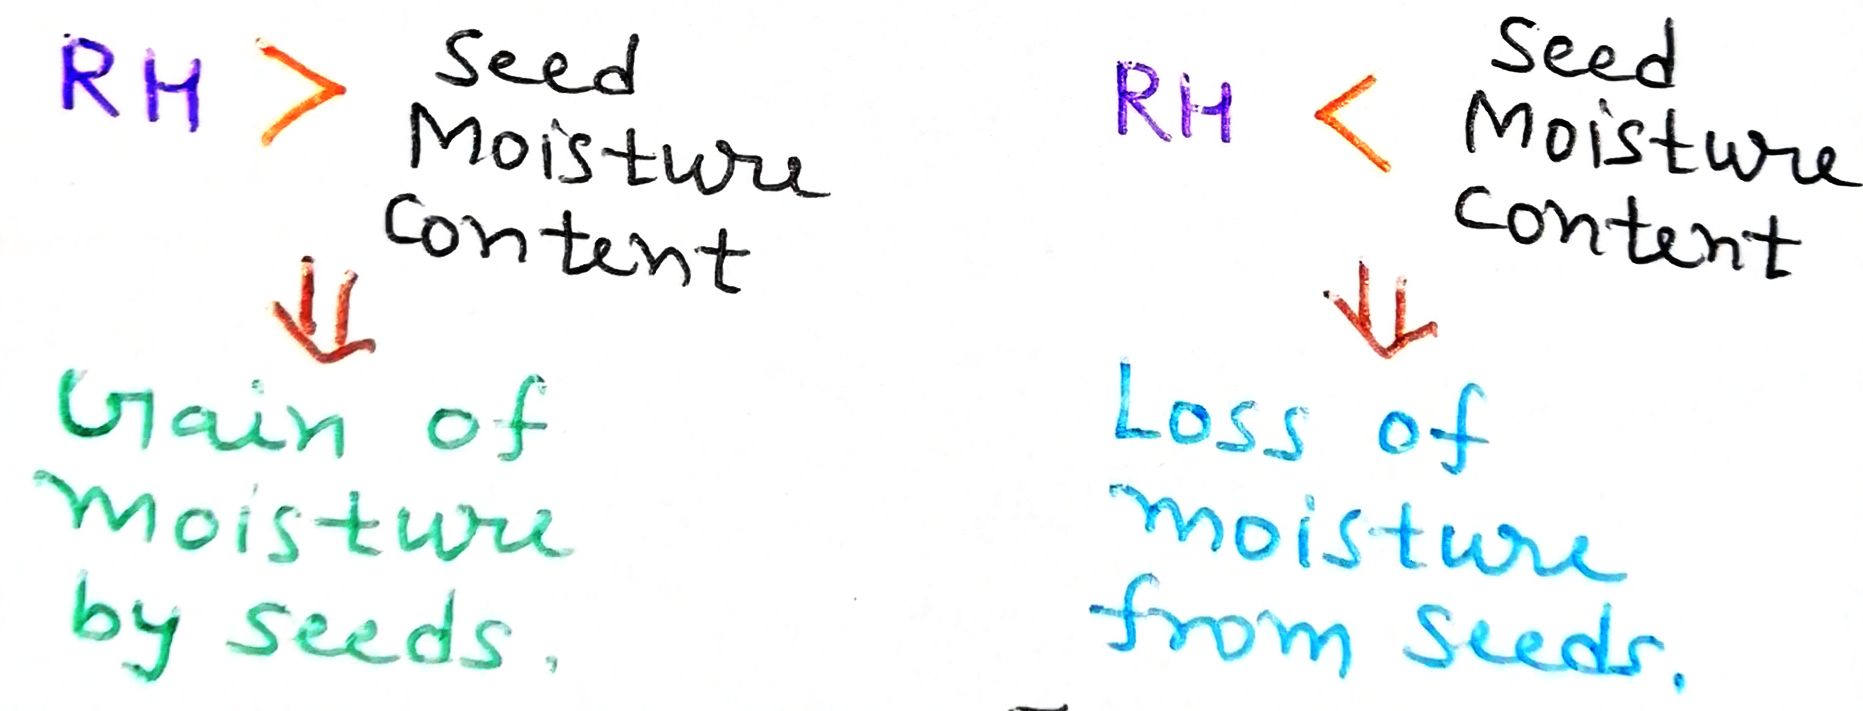 RH > Seed
Moisture
Content
Gain of
Moisture
by seeds.
RH < Seed
Moisture
Content
Loss of
moisture
from seeds.